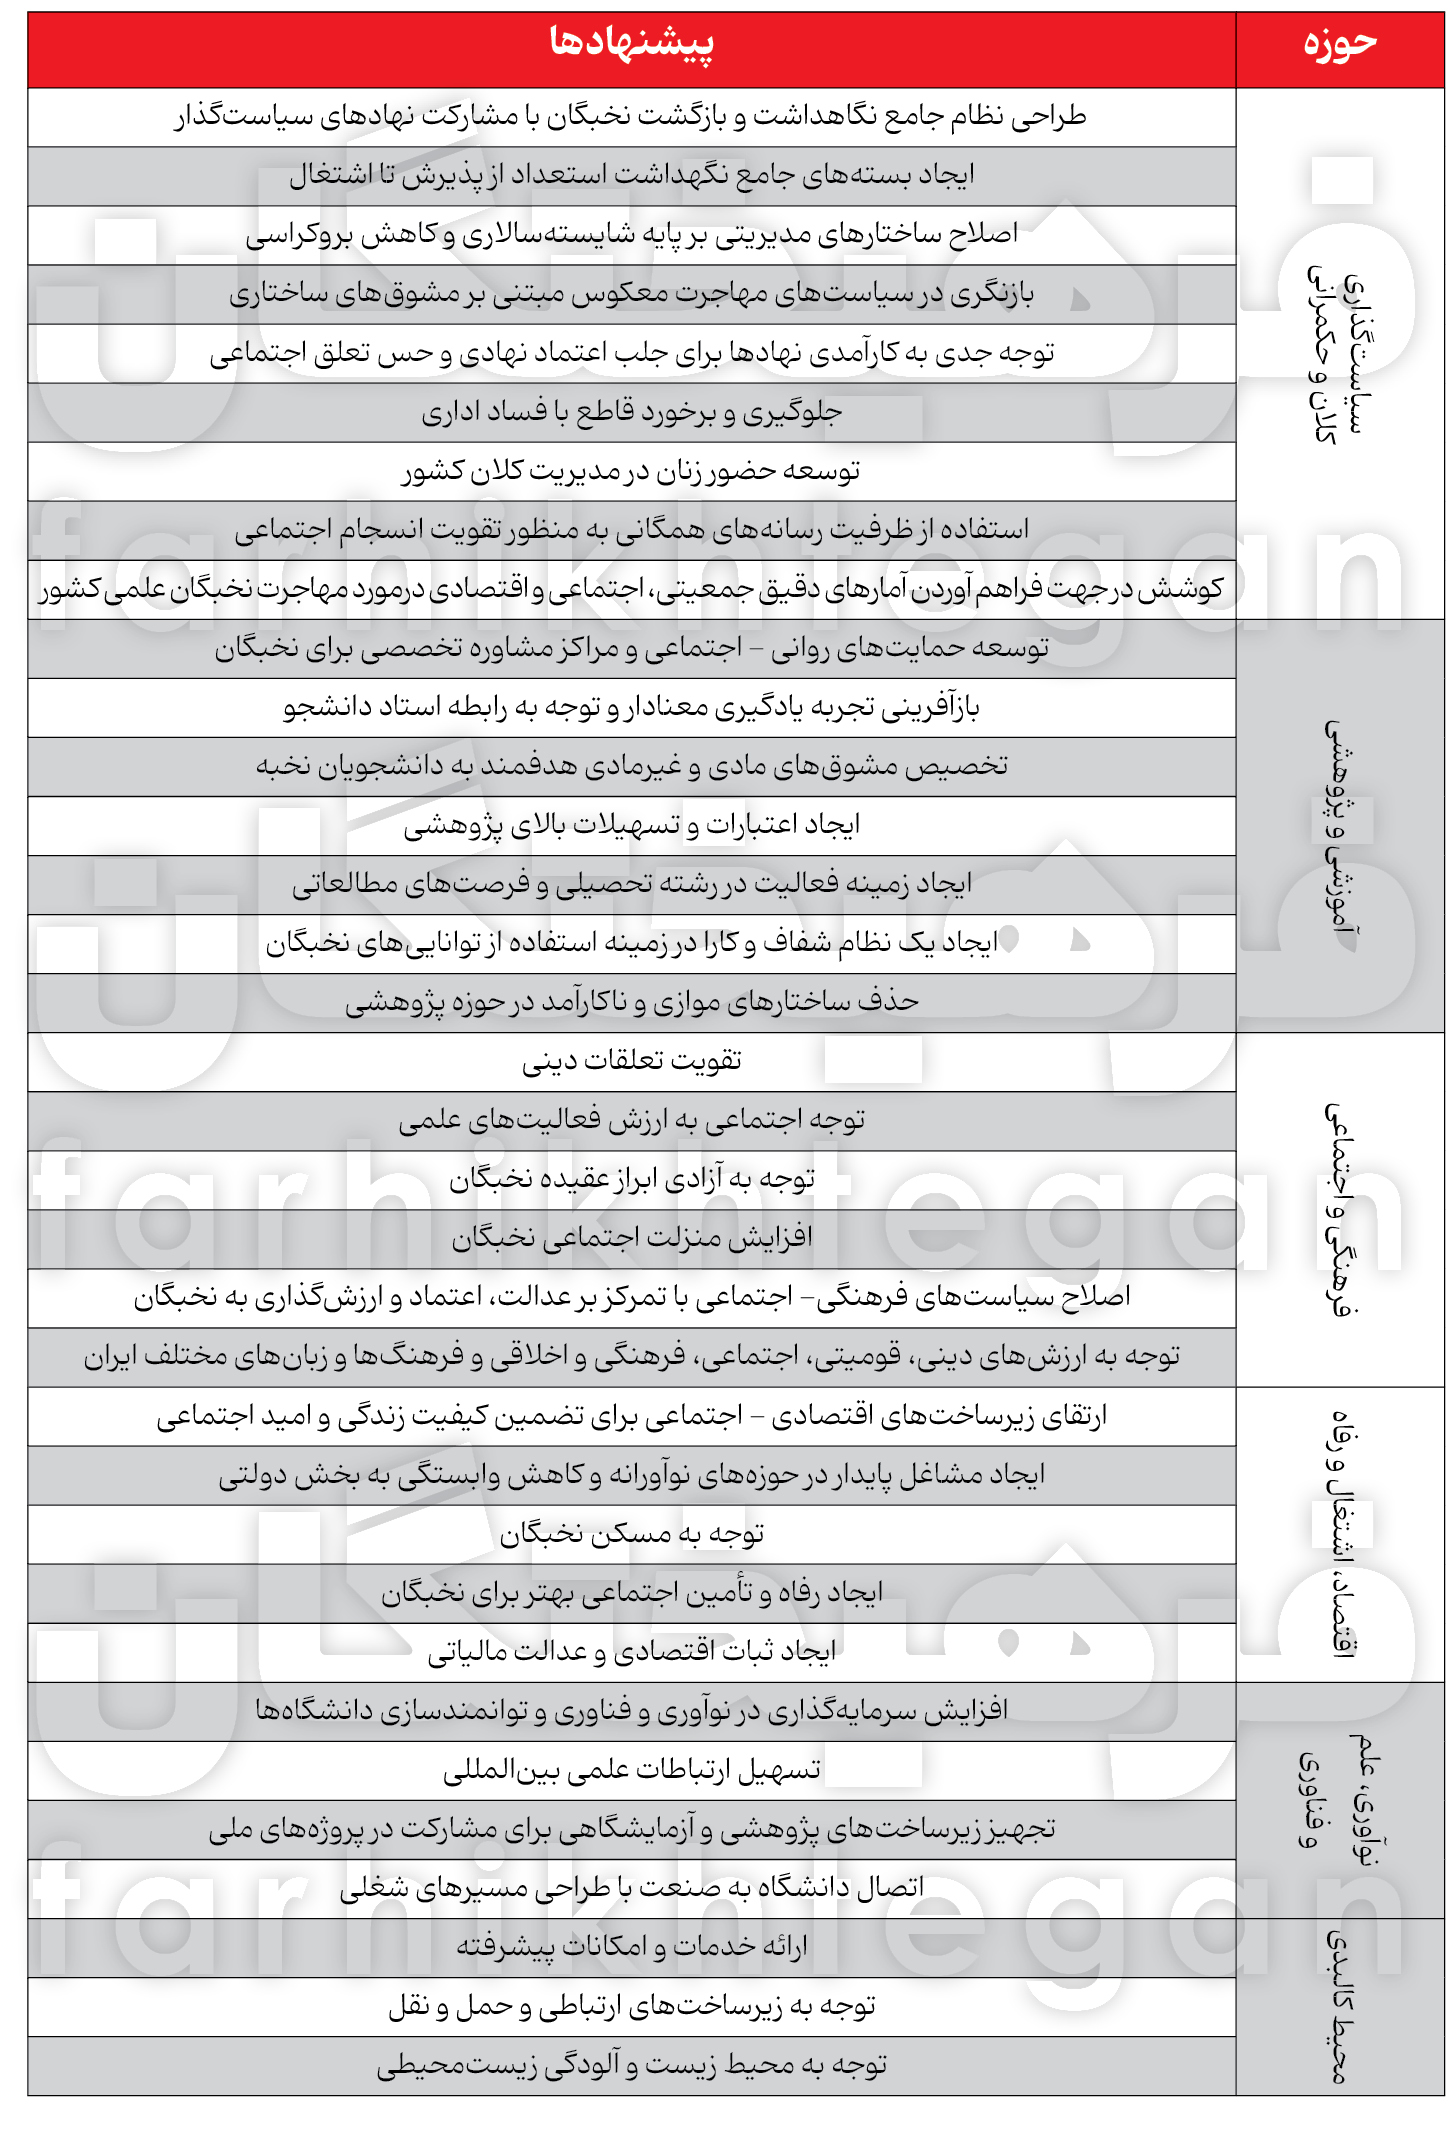 حوزه
پیشنهادها
سیاست‌گذاری
کلان و حکمرانی
طراحی نظام جامع نگاهداشت و بازگشت نخبگان با مشارکت نهادهای سیاست‌گذار
ایجاد بسته‌های جامع نگهداشت استعداد از پذیرش تا اشتغال
اصلاح ساختارهای مدیریتی بر پایه شایسته‌سالاری و کاهش بروکراسی
بازنگری در سیاست‌های مهاجرت معکوس مبتنی بر مشوق‌های ساختاری
توجه جدی به کارآمدی نهادها برای جلب اعتماد نهادی و حس تعلق اجتماعی
جلوگیری و برخورد قاطع با فساد اداری
توسعه حضور زنان در مدیریت کلان کشور
استفاده از ظرفیت رسانه‌های همگانی به منظور تقویت انسجام اجتماعی
کوشش در جهت فراهم آوردن آمارهای دقیق جمعیتی، اجتماعی و اقتصادی درمورد مهاجرت نخبگان علمی کشور
آموزشی و پژوهشی
توسعه حمایت‌های روانی – اجتماعی و مراکز مشاوره تخصصی برای نخبگان
بازآفرینی تجربه یادگیری معنادار و توجه به رابطه استاد دانشجو
تخصیص مشوق‌های مادی و غیرمادی هدفمند به دانشجویان نخبه
ایجاد اعتبارات و تسهیلات بالای پژوهشی
ایجاد زمینه فعالیت در رشته تحصیلی و فرصت‌های مطالعاتی
ایجاد یک نظام شفاف و کارا در زمینه استفاده از توانایی‌های نخبگان
حذف ساختارهای موازی و ناکارآمد در حوزه پژوهشی
فرهنگی و اجتماعی
تقویت تعلقات دینی
توجه اجتماعی به ارزش فعالیت‌های علمی
توجه به آزادی ابراز عقیده نخبگان
افزایش منزلت اجتماعی نخبگان
اصلاح سیاست‌های فرهنگی– اجتماعی با تمرکز بر عدالت، اعتماد و ارزش‌گذاری به نخبگان
توجه به ارزش‌های دینی، قومیتی، اجتماعی، فرهنگی و اخلاقی و فرهنگ‌ها و زبان‌های مختلف ایران
اقتصاد، اشتغال و رفاه
ارتقای زیرساخت‌های اقتصادی – اجتماعی برای تضمین کیفیت زندگی و امید اجتماعی
ایجاد مشاغل پایدار در حوزه‌های نوآورانه و کاهش وابستگی به بخش دولتی
توجه به مسکن نخبگان
ایجاد رفاه و تأمین اجتماعی بهتر برای نخبگان
ایجاد ثبات اقتصادی و عدالت مالیاتی
نوآوری، علم
و فناوری
افزایش سرمایه‌گذاری در نوآوری و فناوری و توانمندسازی دانشگاه‌ها
تسهیل ارتباطات علمی بین‌المللی
تجهیز زیرساخت‌های پژوهشی و آزمایشگاهی برای مشارکت در پروژه‌های ملی
اتصال دانشگاه به صنعت با طراحی مسیرهای شغلی
محیط کالبدی
ارائه خدمات و امکانات پیشرفته
توجه به زیرساخت‌های ارتباطی و حمل و نقل
توجه به محیط زیست و آلودگی زیست‌محیطی
فرهیختگان
farhikhtegan
فرهیختگان
farhikhtegan
فرهیختگان
farhikhtegan